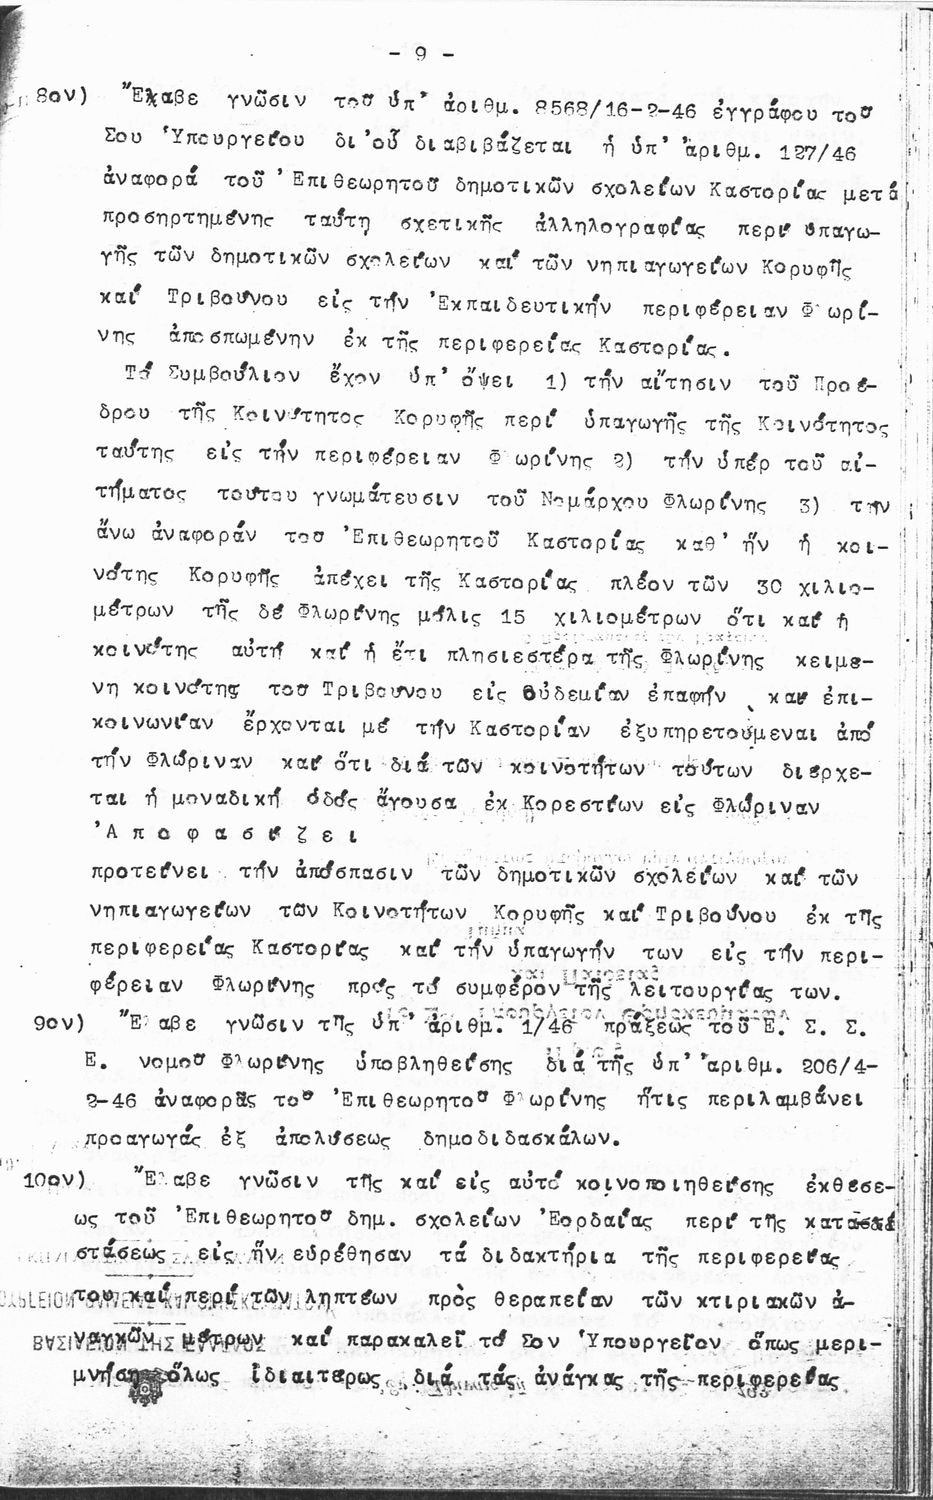 - 9 -
8ον) Ἔλαβε γνῶσιν τοῦ ὑπ' ἀριθμ. 8568/16-2-46 ἐγγράφου τοῦ
Σου Ὑπουργείου δι'οὗ διαβιβάζεται ἡ ὑπ' ἀριθμ. 127/46
ἀναφορά τοῦ Ἐπιθεωρητοῦ δημοτικῶν σχολείων Καστορίας μετά
προσηρτημένης ταύτῃ σχετικῆς ἀλληλογραφίας περί ὑπαγω-
γῆς τῶν δημοτικῶν σχολείων καί τῶν νηπιαγωγείων Κορυφῆς
καί Τριβούνου εἰς τήν Ἐκπαιδευτικήν περιφέρειαν Φλωρί-
νης ἀποσπωμένην ἐκ τῆς περιφερείας Καστορίας.
Τό Συμβούλιον ἔχον ὑπ' ὄψει 1) τήν αἴτησιν τοῦ Προέ-
δρου τῆς Κοινότητος Κορυφῆς περί ὑπαγωγῆς τῆς Κοινότητος
ταύτης εἰς τήν περιφέρειαν Φλωρίνης 2) τήν ὑπέρ τοῦ αἰ-
τήματος τούτου γνωμάτευσιν τοῦ Νομάρχου Φλωρίνης 3) τήν
ἄνω ἀναφοράν τοῦ Ἐπιθεωρητοῦ Καστορίας καθ' ἥν ἡ κοι-
νότης Κορυφῆς ἀπέχει τῆς Καστορίας πλέον τῶν 30 χιλιο-
μέτρων τῆς δέ Φλωρίνης μόλις 15 χιλιομέτρων ὅτι καί ἡ
κοινότης αὐτή καί ἡ ἔτι πλησιεστέρα τῆς Φλωρίνης κειμε-
νη κοινότης τοῦ Τριβούνου εἰς οὐδεμίαν ἐπαφήν καί ἐπι-
κοινωνίαν ἔρχονται μέ τήν Καστορίαν ἐξυπηρετούμεναι ἀπό
τήν Φλώριναν καί ὅτι διά τῶν κοινοτήτων τούτων διέρχε-
ται ἡ μοναδική ὁδός ἄγουσα ἐκ Κορεστίων εἰς Φλώριναν
Ἀ π ο φ α σ ί ζ ε ι
προτείνει τήν ἀπόσπασιν τῶν δημοτικῶν σχολείων καί τῶν
νηπιαγωγείων τῶν Κοινοτήτων Κορυφῆς καί Τριβούνου ἐκ τῆς
περιφερείας Καστορίας καί τήν ὑπαγωγήν των εἰς τήν περι-
φέρειαν Φλωρίνης πρός τό συμφέρον τῆς λειτουργίας των.
9ον) Ἔλαβε γνῶσιν τῆς ὑπ' ἀριθμ. 1/46 πράξεως τοῦ Ε. Σ. Σ.
Ε. νομοῦ Φλωρίνης ὑποβληθείσης διά τῆς ὑπ' ἀριθμ. 206/4-
2-46 ἀναφορᾶς τοῦ Ἐπιθεωρητοῦ Φλωρίνης ἥτις περιλαμβάνει
προαγωγάς ἐξ ἀπολύσεως δημοδιδασκάλων.
10ον) Ἔλαβε γνῶσιν τῆς καί εἰς αὐτό κοινοποιηθείσης ἐκθέσε-
ως τοῦ Ἐπιθεωρητοῦ δημ. σχολείων Ἐορδαίας περί τῆς κατα
στάσεως εἰς ἥν εὑρέθησαν τά διδακτήρια τῆς περιφερείας
του καί περί τῶν ληπτέων πρὸς θεραπείαν τῶν κτιριακῶν ἀ-
ναγκῶν μέτρων καί παρακαλεῖ τό Σον Ὑπουργεῖον ὅπως μερι-
μνήσῃ ὅλως ἰδιαιτέρως διά τάς ἀνάγκας τῆς περιφερείας